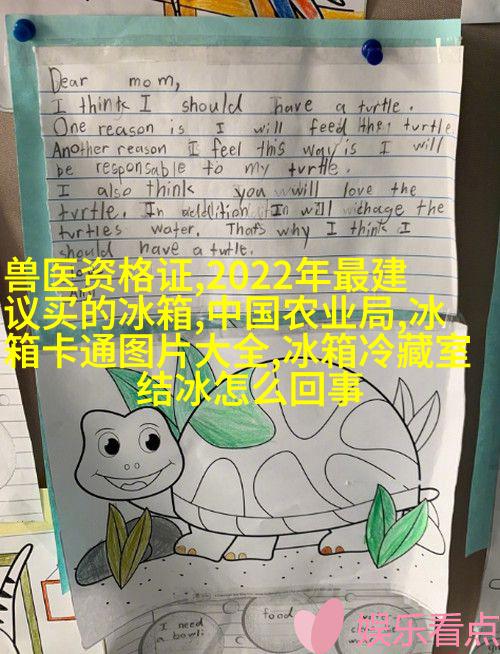 Dear mom,
I think I should have a turtle.
One reason is I will feed the turtle.
Another reason I feel this way is I will
be responsable to my turtle.
I also think you will love the
turtle. In addition I will chage the
turtles water. That's why I think I
should have a turtle.
兽医资格证,2022年最建
议买的冰箱,中国农业局,冰
箱卡通图片大全,冰箱冷藏室
结冰怎么回事
I need
a bowl
food
娱乐看点